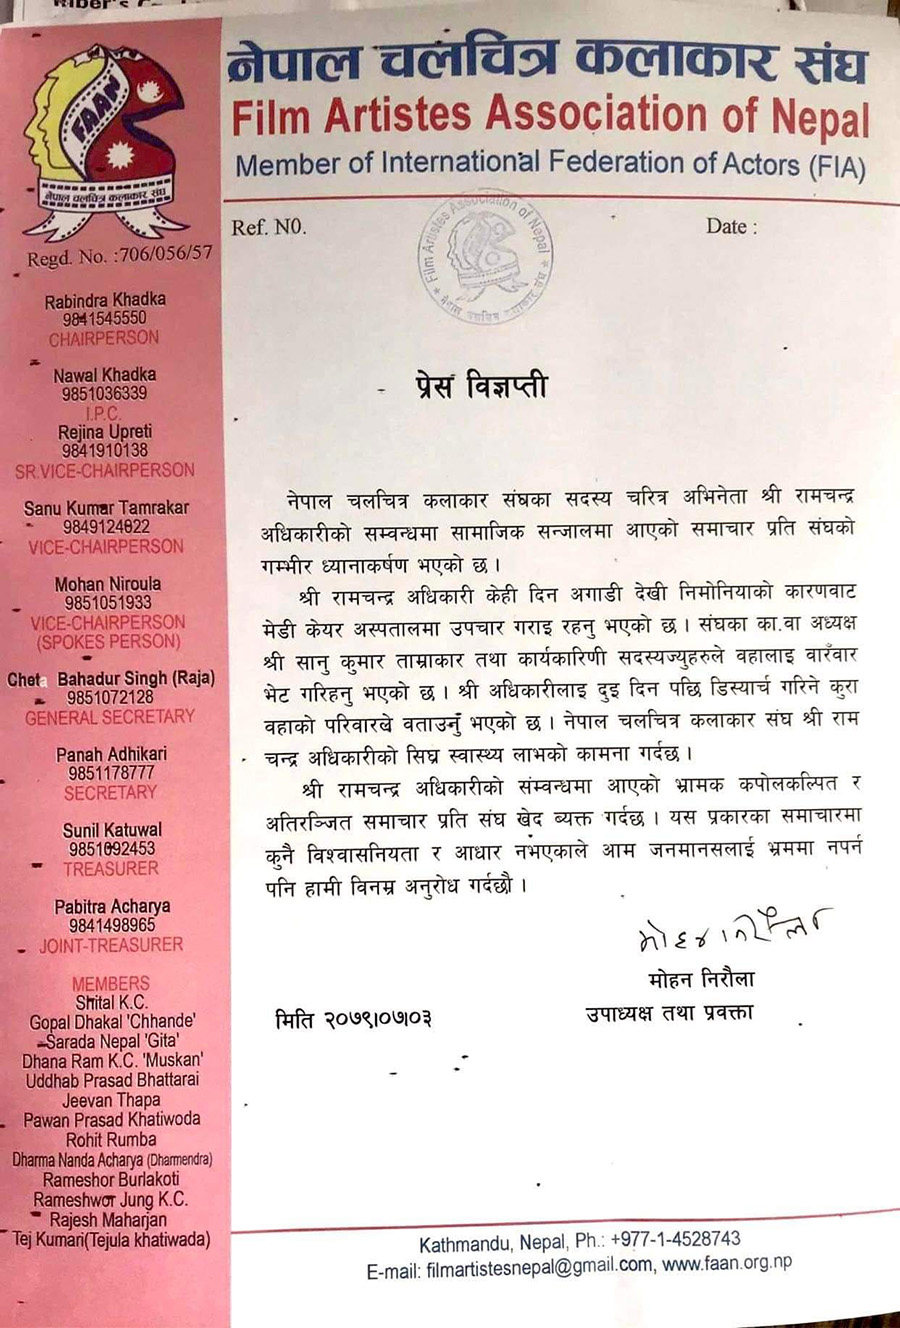 नेपाल चलचित्र कलाकार संघ
Film Artistes Association of Nepal
Member of International Federation of Actors (FIA)
FAAN
नेपाल चलचित्र कलाकार संघ
Regd. No. :706/056/57
Ref. N0.
Date :
Film Artistes Association of Nepal
नेपाल चलचित्र कलाकार संघ
Rabindra Khadka
9841545550
CHAIRPERSON
Nawal Khadka
9851036339
I.P.C.
Rejina Upreti
9841910138
SR.VICE-CHAIRPERSON
Sanu Kumar Tamrakar
9849124622
VICE-CHAIRPERSON
Mohan Niroula
9851051933
VICE-CHAIRPERSON
(SPOKES PERSON)
Bahadur Singh (Raja)
9851072128
GENERAL SECRETARY
Panah Adhikari
9851178777
SECRETARY
Sunil Katuwal
9851092453
TREASURER
Pabitra Acharya
9841498965
JOINT-TREASURER
MEMBERS
Shital K.C.
Gopal Dhakal 'Chhande'
Sarada Nepal 'Gita'
Dhana Ram K.C. 'Muskan'
Uddhab Prasad Bhattarai
Jeevan Thapa
Pawan Prasad Khatiwoda
Rohit Rumba
Dharma Nanda Acharya (Dharmendra)
Rameshor Burlakoti
Rameshwor Jung K.C.
Rajesh Maharjan
Tej Kumari(Tejula khatiwada)
प्रेस विज्ञप्ती
नेपाल चलचित्र कलाकार संघका सदस्य चरित्र अभिनेता श्री रामचन्द्र
अधिकारीको सम्वन्धमा सामाजिक सन्जालमा आएको समाचार प्रति संघको
गम्भीर ध्यानाकर्षण भएको छ ।
श्री रामचन्द्र अधिकारी केही दिन अगाडी देखी निमोनियाको कारणवाट
मेडी केयर अस्पतालमा उपचार गराइ रहनु भएको छ । संघका का.वा अध्यक्ष
श्री सानु कुमार ताम्राकार तथा कार्यकारिणी सदस्यज्युहरुले वहालाइ वारँवार
भेट गरिहनु भएको छ । श्री अधिकारीलाइ दुइ दिन पछि डिस्यार्च गरिने कुरा
वहाको परिवारखे वताउनुँ भएको छ । नेपाल चलचित्र कलाकार संघ श्री राम
चन्द्र अधिकारीको सिघ्र स्वास्थ्य लाभको कामना गर्दछ ।
श्री रामचन्द्र अधिकारीको संम्वन्धमा आएको भ्रामक कपोलकल्पित र
अतिरञ्जित समाचार प्रति संघ खेद व्यक्त गर्दछ । यस प्रकारका समाचारमा
कुनै विश्वासनियता र आधार नभएकाले आम जनमानसलाई भ्रममा नपर्न
पनि हामी विनम्र अनुरोध गर्दछौ ।
मोहन निरौला
मोहन निरौला
उपाध्यक्ष तथा प्रवक्ता
मिति २०७९।०७।०३
Kathmandu, Nepal, Ph.: +977-1-4528743
E-mail: filmartistesnepal@gmail.com, www.faan.org.np